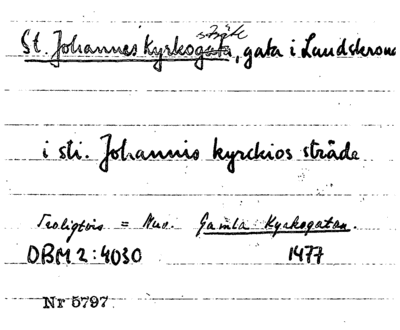 stråk
St. Johannes Kyrkogata, gata i Landskrona
i sti. Johannis kyrckios stråde
Troligtvis = Nuv. Gamla Kyrkogatan.
DBM 2:4030 1477
Nr 5797